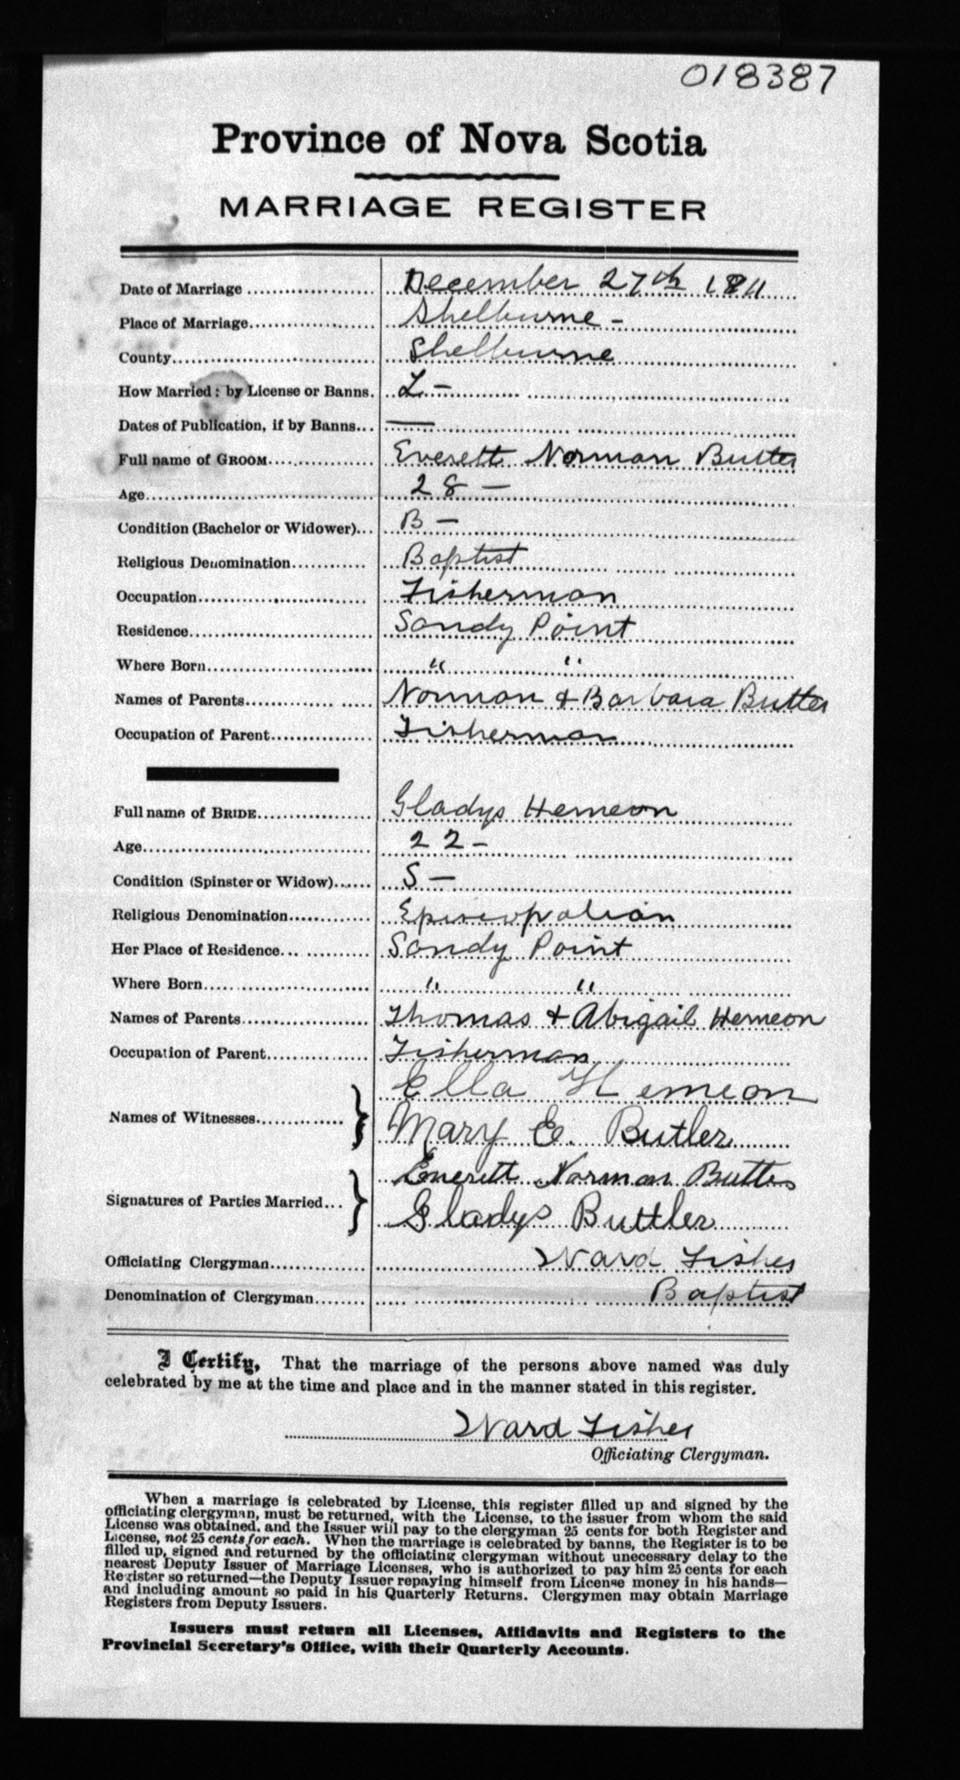 018387
Province of Nova Scotia
MARRIAGE REGISTER
Date of Marriage December 27th 1911
Place of Marriage Shelburne -
County Shelburne
How Married: by License or Banns. L -
Dates of Publication, if by Banns... —
Full name of GROOM Everett Norman Butler
Age 28 —
Condition (Bachelor or Widower)... B —
Religious Denomination Baptist
Occupation Fisherman
Residence Sandy Point
Where Born " "
Names of Parents Norman & Barbara Butler
Occupation of Parent Fisherman
Full name of BRIDE Gladys Hemeon
Age 22 -
Condition (Spinster or Widow) S —
Religious Denomination Episcopalian
Her Place of Residence Sandy Point
Where Born " "
Names of Parents Thomas & Abigail Hemeon
Occupation of Parent Fisherman
Ella Hemeon
Names of Witnesses
Mary E. Butler
Everett Norman Butler
Signatures of Parties Married
Gladys Buttler
Officiating Clergyman Ward Fisher
Denomination of Clergyman Baptist
I Certify, That the marriage of the persons above named was duly
celebrated by me at the time and place and in the manner stated in this register.
Ward Fisher
Officiating Clergyman.
When a marriage is celebrated by License, this register filled up and signed by the
officiating clergyman, must be returned, with the License, to the issuer from whom the said
License was obtained, and the Issuer will pay to the clergyman 25 cents for both Register and
License, not 25 cents for each. When the marriage is celebrated by banns, the Register is to be
filled up, signed and returned by the officiating clergyman without unecessary delay to the
nearest Deputy Issuer of Marriage Licenses, who is authorized to pay him 25 cents for each
Register so returned—the Deputy Issuer repaying himself from License money in his hands—
and including amount so paid in his Quarterly Returns. Clergymen may obtain Marriage
Registers from Deputy Issuers.
Issuers must return all Licenses, Affidavits and Registers to the
Provincial Secretary's Office, with their Quarterly Accounts.